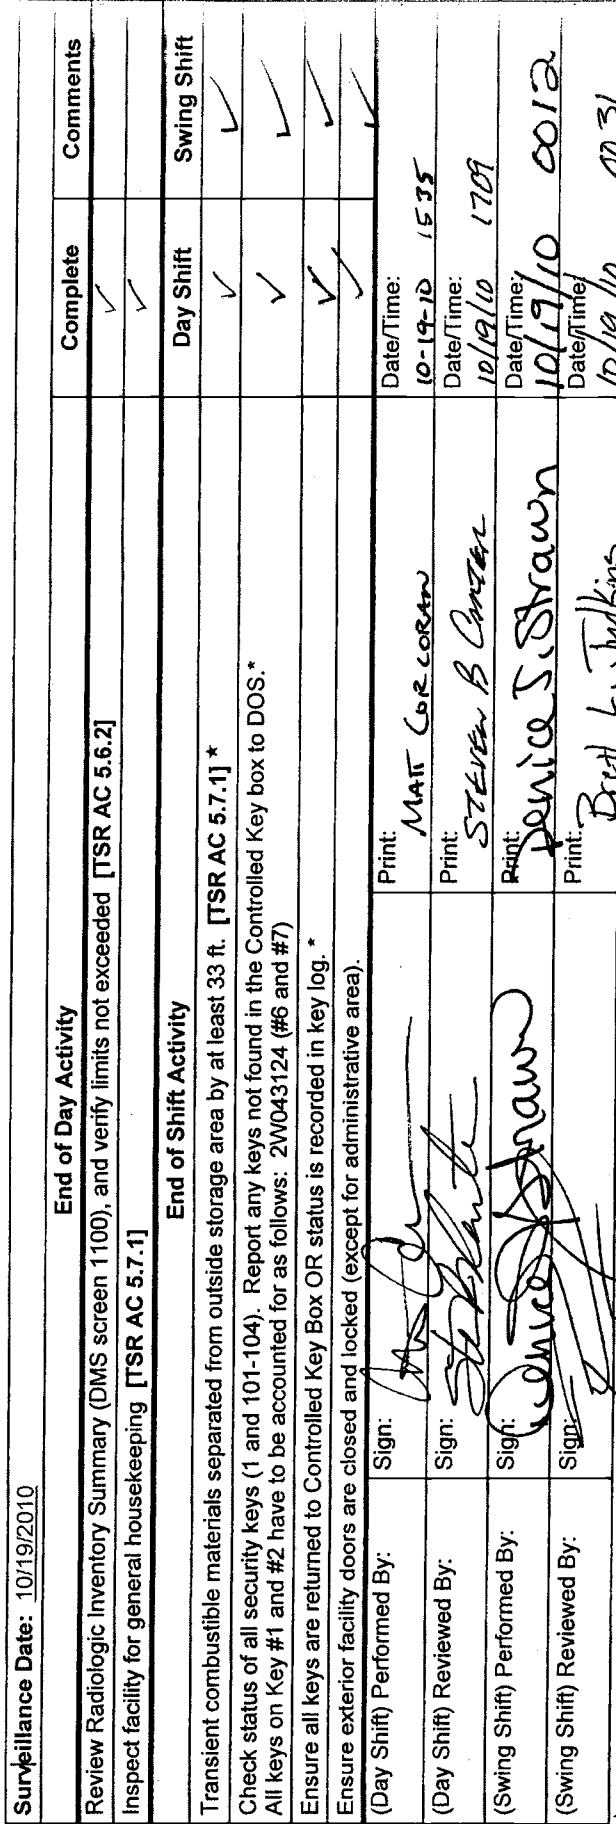 Surveillance Date: 10/19/2010
End of Day Activity Complete Comments
Review Radiologic Inventory Summary (DMS screen 1100), and verify limits not exceeded [TSR AC 5.6.2] ✓
Inspect facility for general housekeeping [TSR AC 5.7.1] ✓
End of Shift Activity Day Shift Swing Shift
Transient combustible materials separated from outside storage area by at least 33 ft. [TSR AC 5.7.1] * ✓ ✓
Check status of all security keys (1 and 101-104). Report any keys not found in the Controlled Key box to DOS.* ✓ ✓
All keys on Key #1 and #2 have to be accounted for as follows: 2W043124 (#6 and #7)
Ensure all keys are returned to Controlled Key Box OR status is recorded in key log.* ✓ ✓
Ensure exterior facility doors are closed and locked (except for administrative area). ✓ ✓
(Day Shift) Performed By: Sign: Print: MATT CORCORAN Date/Time: 10-19-10 1535
(Day Shift) Reviewed By: Sign: Print: STEVEN B CARTER Date/Time: 10/19/10 1709
(Swing Shift) Performed By: Sign: Denice J Strawn Print: Denice J. Strawn Date/Time: 10/19/10 0012
(Swing Shift) Reviewed By: Sign: Print: Brett Judkins Date/Time: 10/19/10 0031